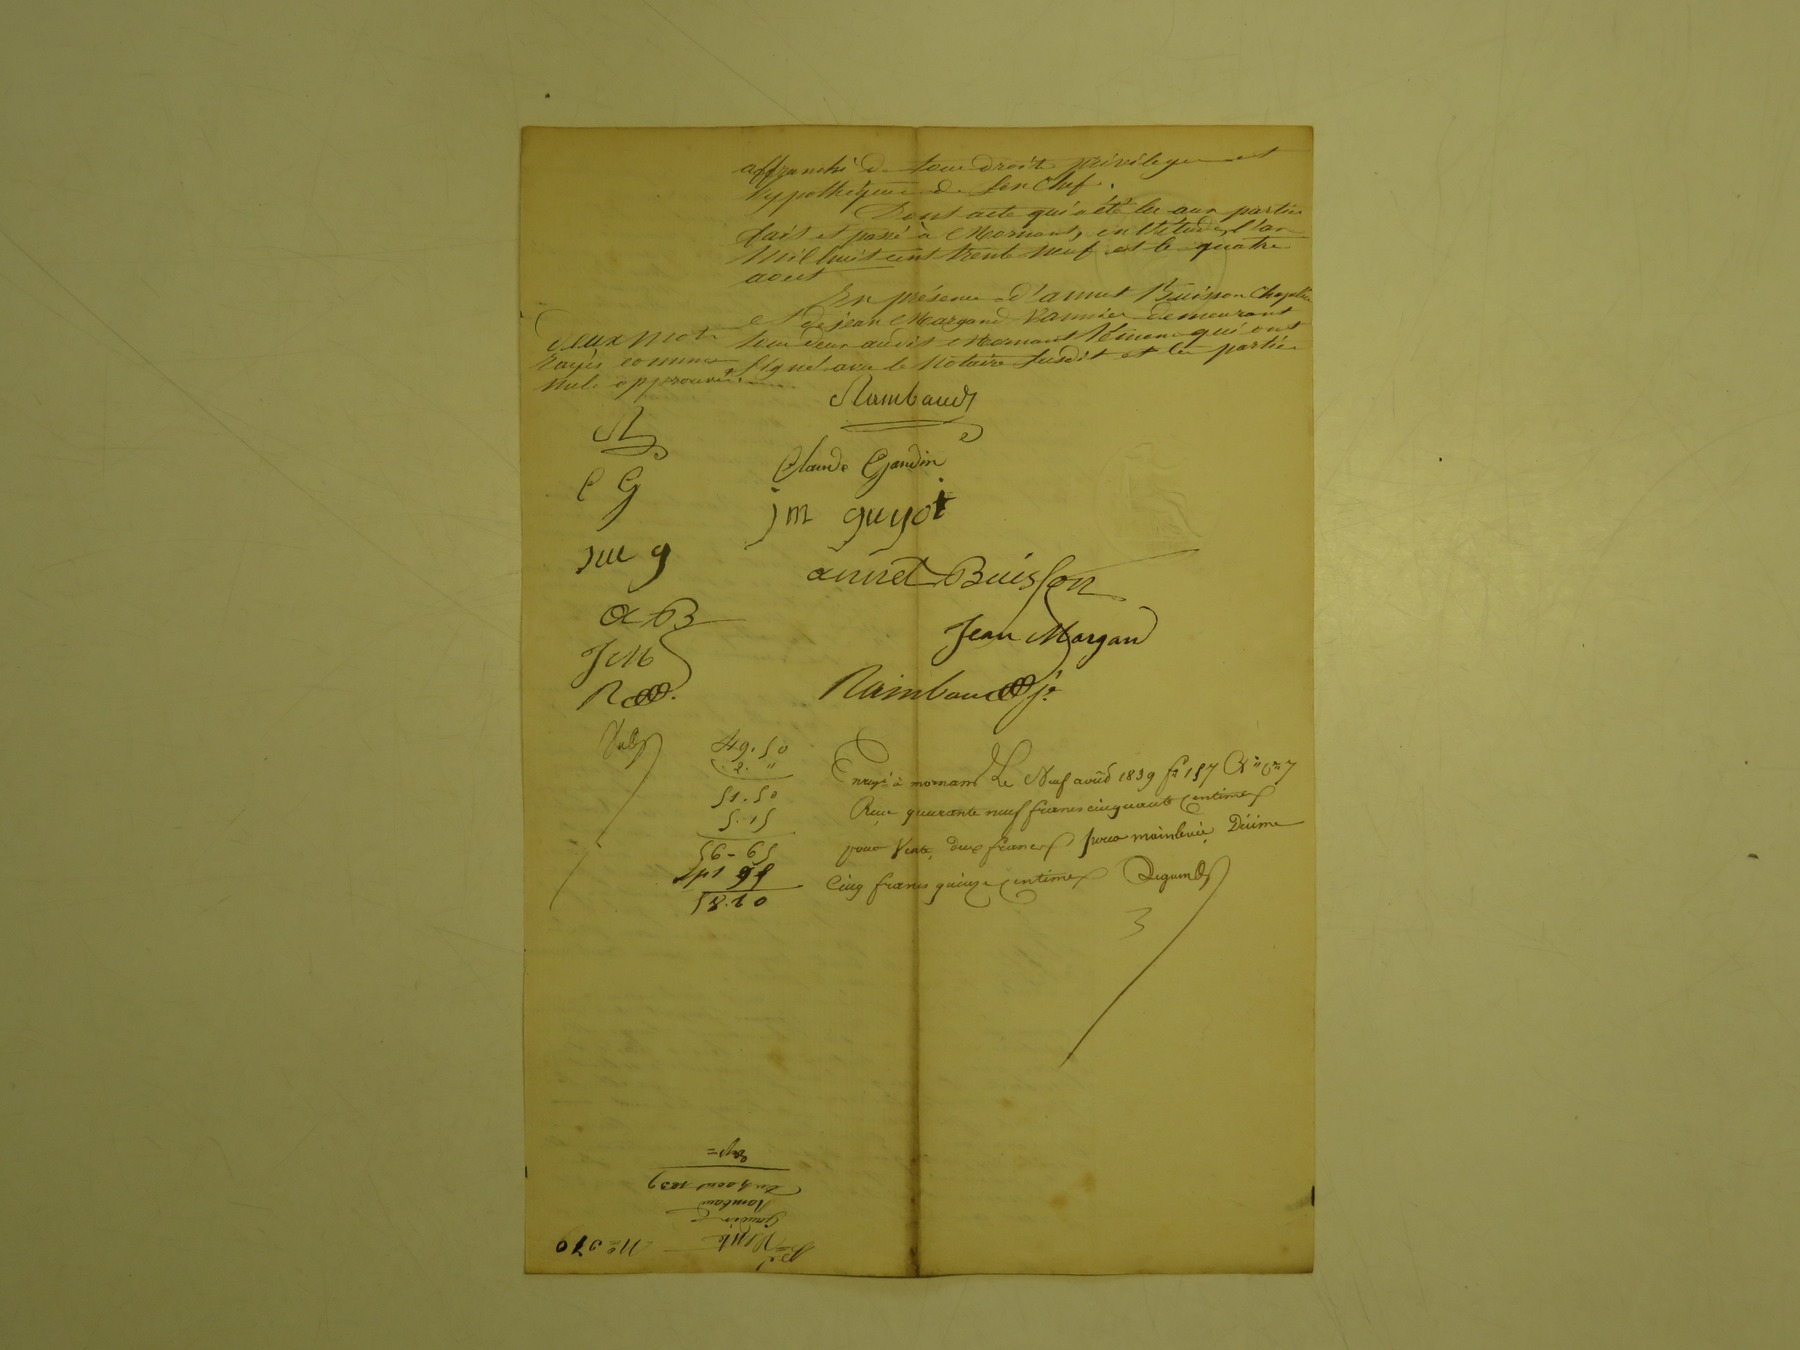 affranchi de tous droits privilege et
hypothèque de son chef.
Dont acte qui a été lu aux parties
fait et passé à Mornant, en l'étude, l'an
Mil huit cent trente neuf et le quatre
aout
En présence d'annet Buisson Chapelier
et de jean Margand Vannier demeurant
tous deux audit Mornant témoins qui ont
signé avec le Notaire susdit et les parties
Deux mots
rayés comme
nuls approuvés
Rambaud
R
Claude Gaudin
C G
jm guyot
jm g
annet Buisson
a B
Jean Margand
J M
R
Rambaud je
49.50
2. "
51.50
5.15
56-65
58.10
Enregé à mornant Le Neuf août 1839 fo 157 Ro co 7
Reçu quarante neuf francs cinquante centimes
pour Vente, deux francs pour mainlevée, Décime
Cinq francs quinze centimes
3
No 310
Vente
Gaudin
Rambaud
Du 4 aout 1839
Expon